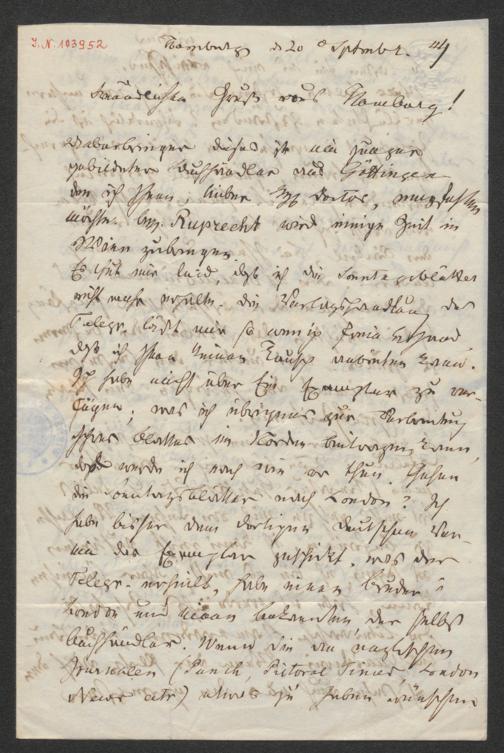 I.N. 103952
Hamburg d 20 Septembr. 44
Freundlichen Gruß aus Hamburg!
Ueberbringer dieses ist ein junger
gebildeter Buchhändler aus Göttingen
den ich Ihnen, lieber Hr Doctor, empfehlen
möchte. Hr. Ruprecht wird einige Zeit in
Wien zubringen.
Es thut mir leid, daß ich die Sonntagsblätter
nicht mehr erhalte. Die Verlagshandlung des
Telegr. läßt mir so wenig freie Hand
daß ich Ihnen keinen Tausch anbieten kann.
Ich habe nicht über Ein Exemplar zu ver-
fügen, was ich übrigens zur Verbreitung
Ihres Blattes im Norden beitragen kann,
werde ich nach wie vor thun. Gehen
die Sonntagsblätter nach London? Ich
habe bisher dem dortigen deutschen Ver-
ein das Exemplar geschickt, was der
Telegr. erhielt, habe einen Bruder in
London und einen Bekannten der selbst
Buchhändler. Wenn Sie von englischen
Journalen (Punch, Pictoral Times, London
News etc) etwas zu haben wünschen